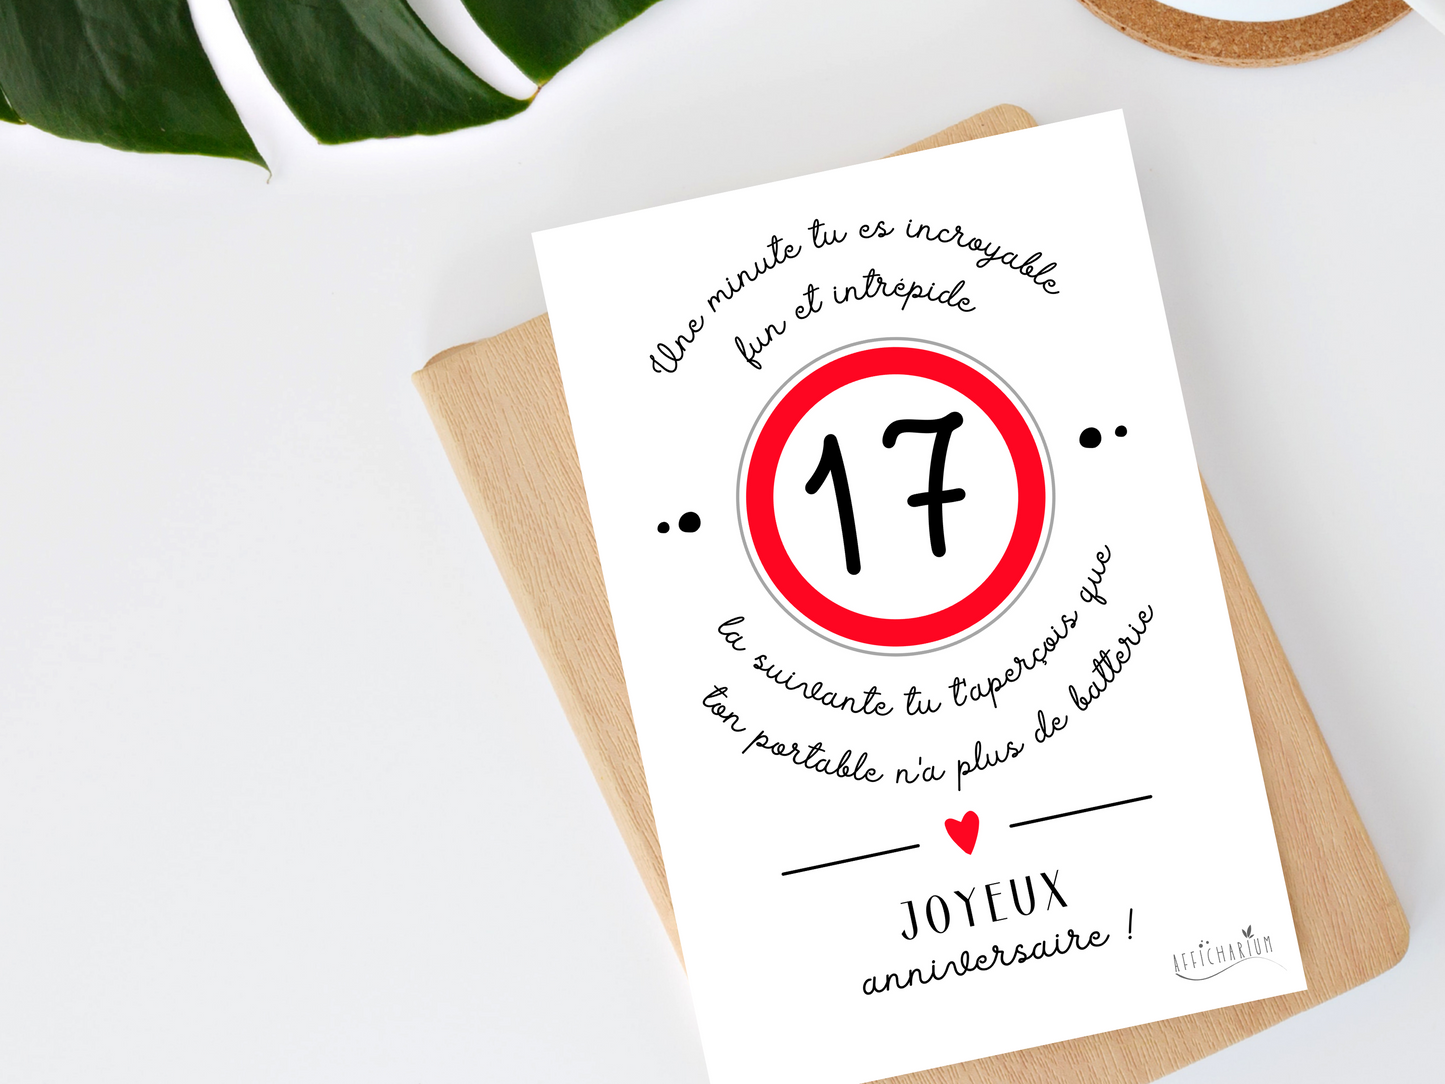 Une minute tu es incroyable
fun et intrépide
17
la suivante tu t'aperçois que
ton portable n'a plus de batterie
JOYEUX
anniversaire !
AFFICHARIUM